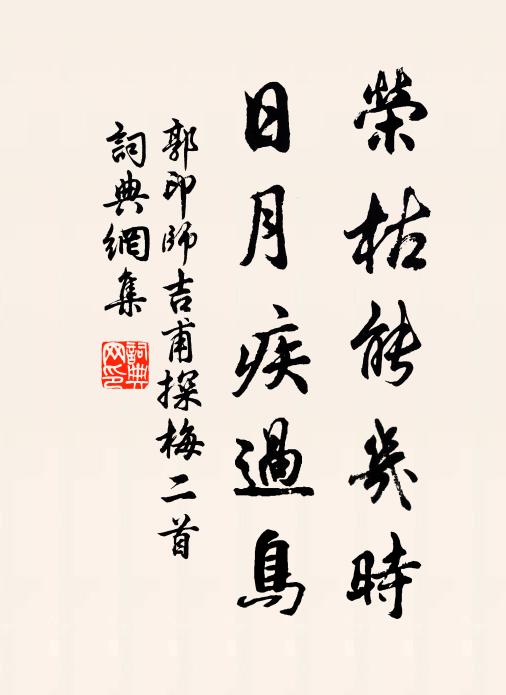 榮枯能幾時
日月疾過鳥
郭印師吉甫探梅二首
詞典網集
詞典
网印